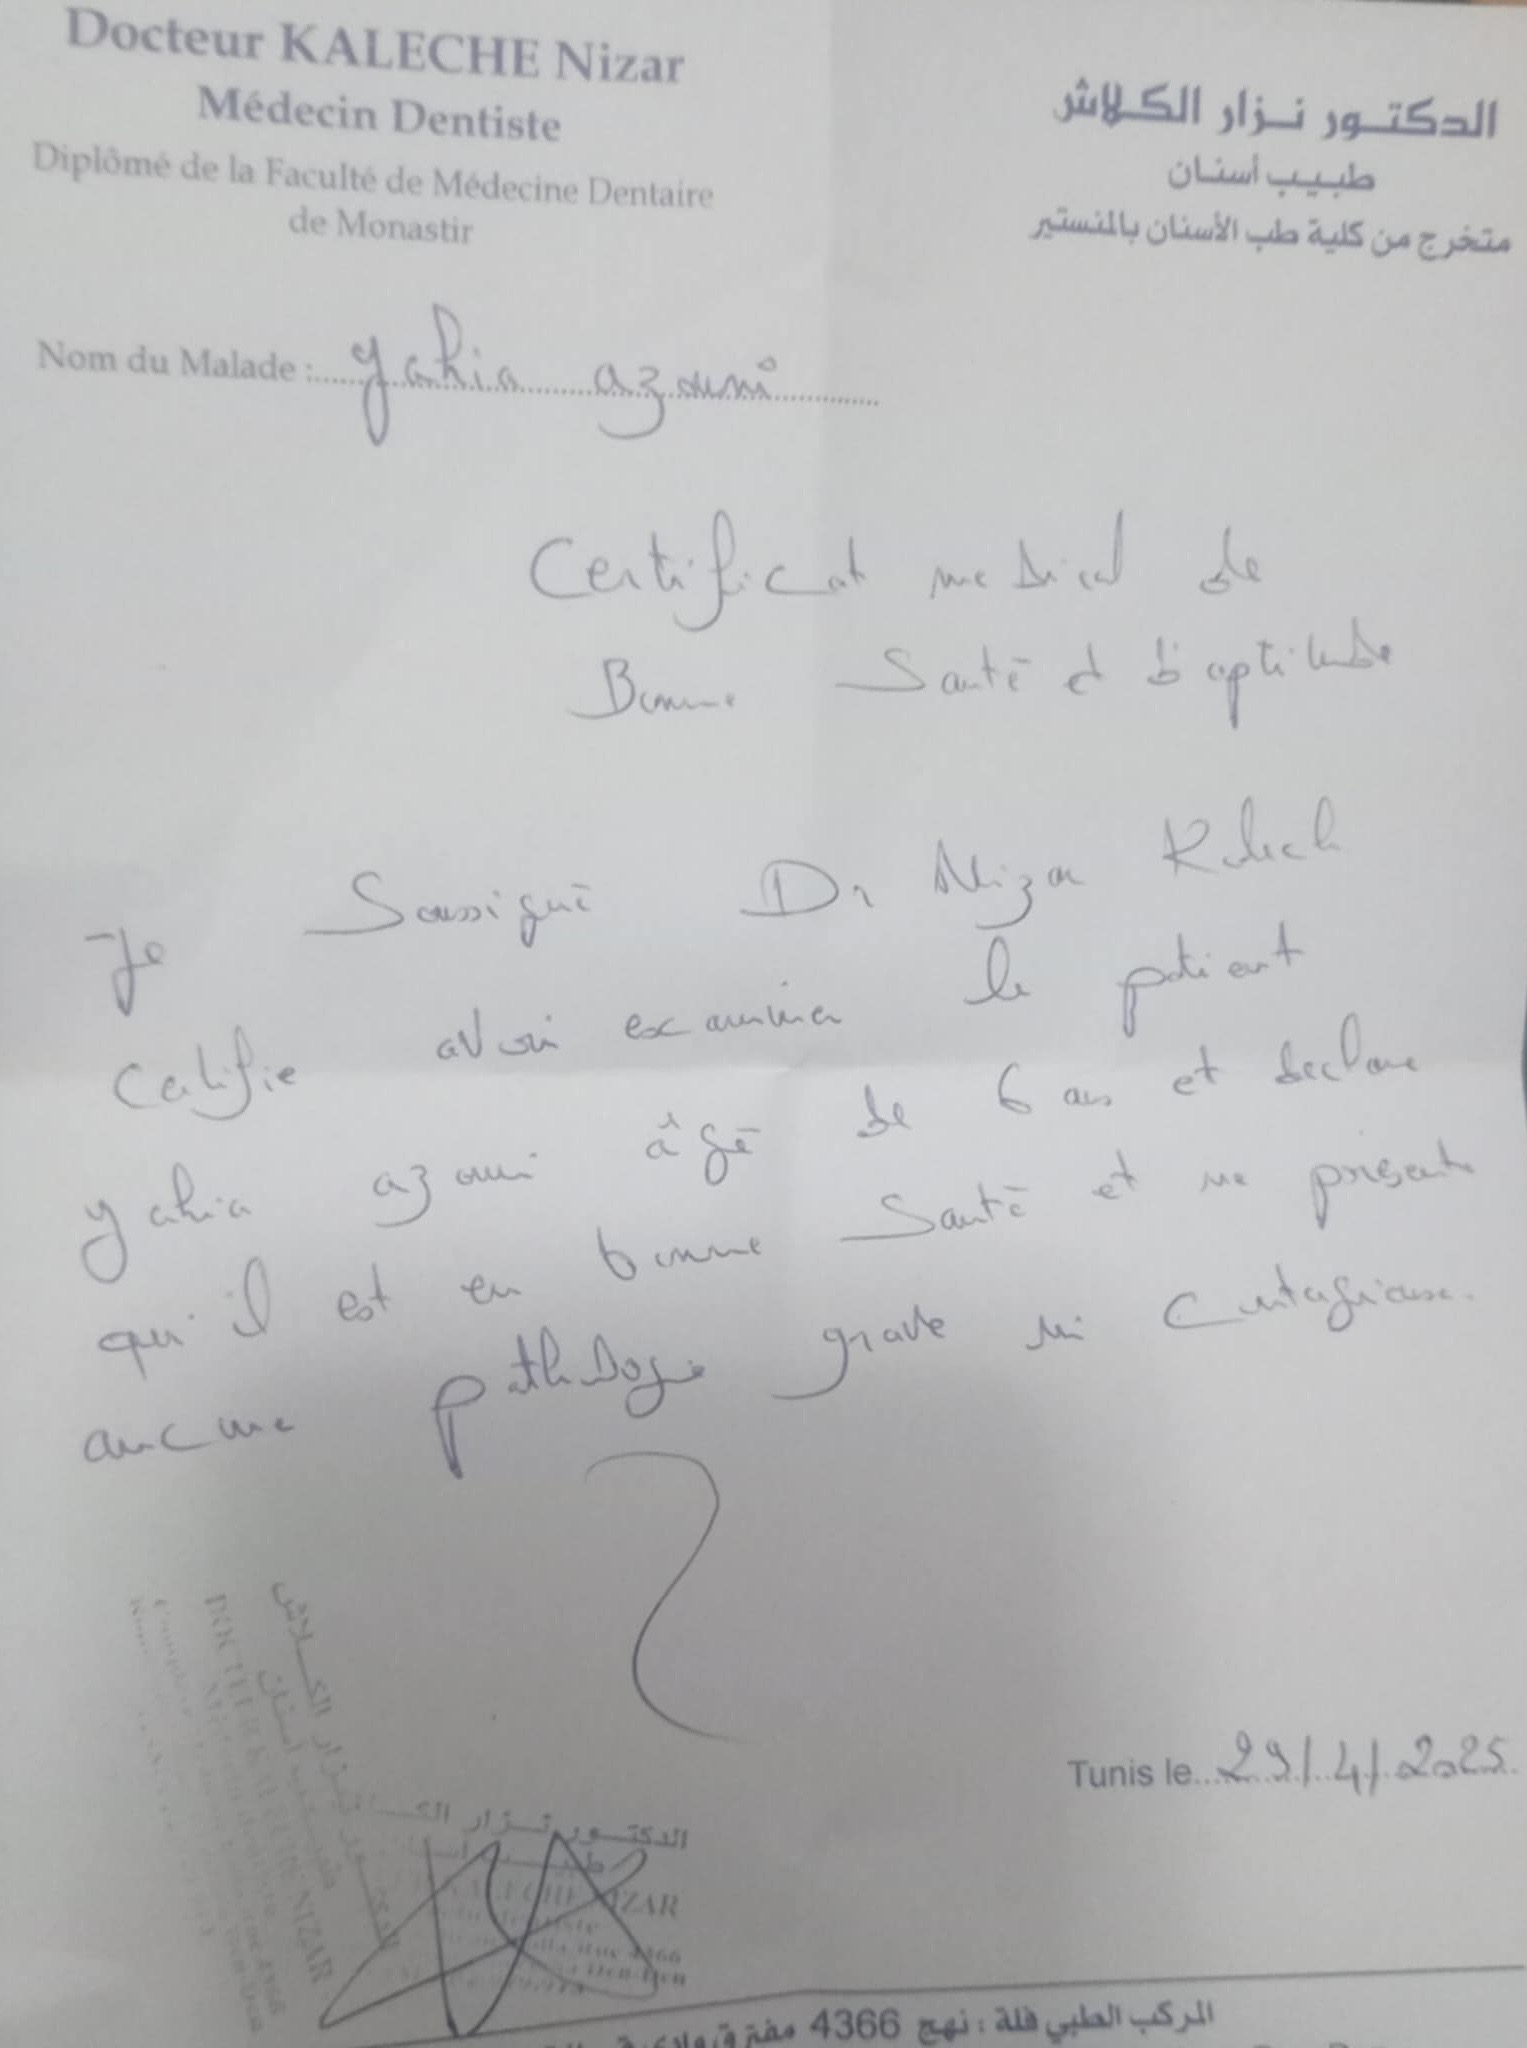 Docteur KALECHE Nizar
Médecin Dentiste
Diplômé de la Faculté de Médecine Dentaire
de Monastir
الدكتـور نـزار الكـلاش
طبيـب أسنـان
متخرج من كلية طب الأسنان بالمنستير
Nom du Malade : yahia azouni
Certificat medical de
Bonne Santé et d'aptitude
Je Soussigné Dr Nizar Kalech
Certifie avoir examiner le patient
yahia azouni âgé de 6 ans et declare
qu'il est en bonne Santé et ne présente
aucune pathologie grave ni contagieuse.
Tunis le 29/4/2025
DOCTEUR KALECHE NIZAR
الدكتـور نـزار
NIZAR
4366
المركب الطبي فلة : نهج 4366